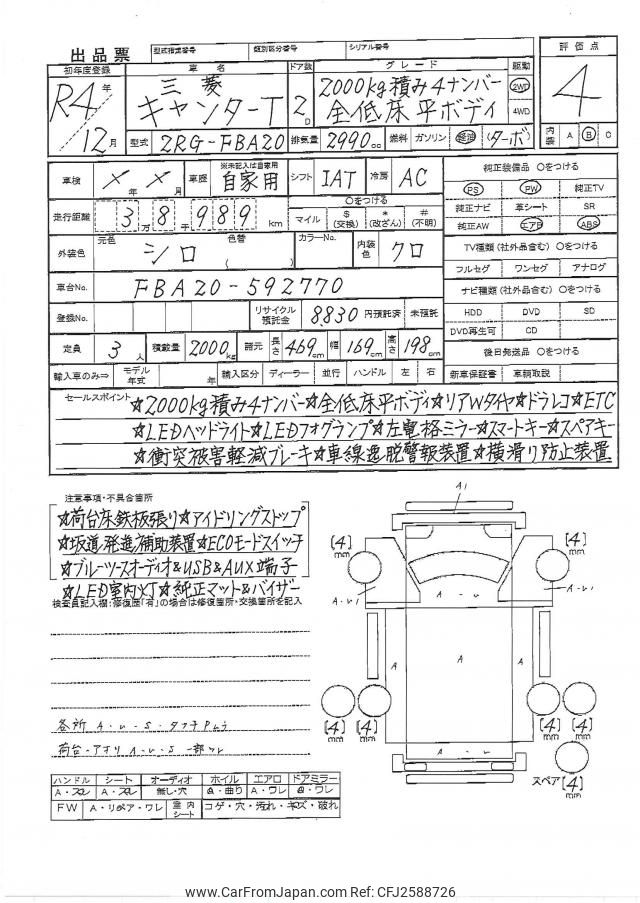 出品票
型式指定番号 類別区分番号 シリアル番号
初年度登録 車名 ドア数 グレード 駆動 評価点
R4年 三菱 2000kg積み4ナンバー 2WD 4
キャンターT 2D 全低床平ボディ 4WD
12月 型式 2RG-FBA20 排気量 2990cc 燃料 ガソリン 軽油 ターボ 内装 A B C
車検 ×年 ×月 車歴 ※未記入は自家用 自家用 シフト IAT 冷房 AC 純正装備品 ○をつける
PS PW 純正TV
走行距離 3万8千989km ○をつける マイル $(交換) *(改ざん) #(不明) 純正ナビ 革シート SR
純正AW エアB ABS
外装色 元色 シロ 色替 ( ) カラーNo. 内装色 クロ TV種類(社外品含む) ○をつける
フルセグ ワンセグ アナログ
車台No. FBA20-592770 ナビ種類(社外品含む) ○をつける
登録No. リサイクル預託金 8830 円預託済 未預託 HDD DVD SD
DVD再生可 CD
定員 3人 積載量 2000kg 諸元 長さ 469cm 幅 169cm 高さ 198cm 後日発送品 ○をつける
輸入車のみ⇒ モデル年式 年 輸入区分 ディーラー 並行 ハンドル 左 右 新車保証書 車輌取説
セールスポイント ☆2000kg積み4ナンバー☆全低床平ボディ☆リアWタイヤ☆ドラレコ☆ETC
☆LEDヘッドライト☆LEDフォグランプ☆左電格ミラー☆スマートキー☆スペアキー
☆衝突被害軽減ブレーキ☆車線逸脱警報装置☆横滑り防止装置
注意事項・不具合箇所
☆荷台床鉄板張り☆アイドリングストップ
☆坂道発進補助装置☆ECOモードスイッチ
☆ブルーツースオーディオ&USB&AUX端子
☆LED室内灯☆純正マット&バイザー
検査員記入欄:修復歴「有」の場合は修復箇所・交換箇所を記入
A1
[4]mm [4]mm
A-U1 A-U1
A A-U A
各所 A-U-S-タッチPムラ
[4]mm [4]mm [4]mm [4]mm
荷台-アオリ A-U-S 一部ワレ
A-U
スペア [4]mm
ハンドル シート オーディオ ホイル エアロ ドアミラー
A・スレ A・スレ 無し・穴 A・曲り A・ワレ A・ワレ
FW A・リペア・ワレ 室内シート コゲ・穴・汚れ・キズ・破れ
www.CarFromJapan.com Ref: CFJ2588726